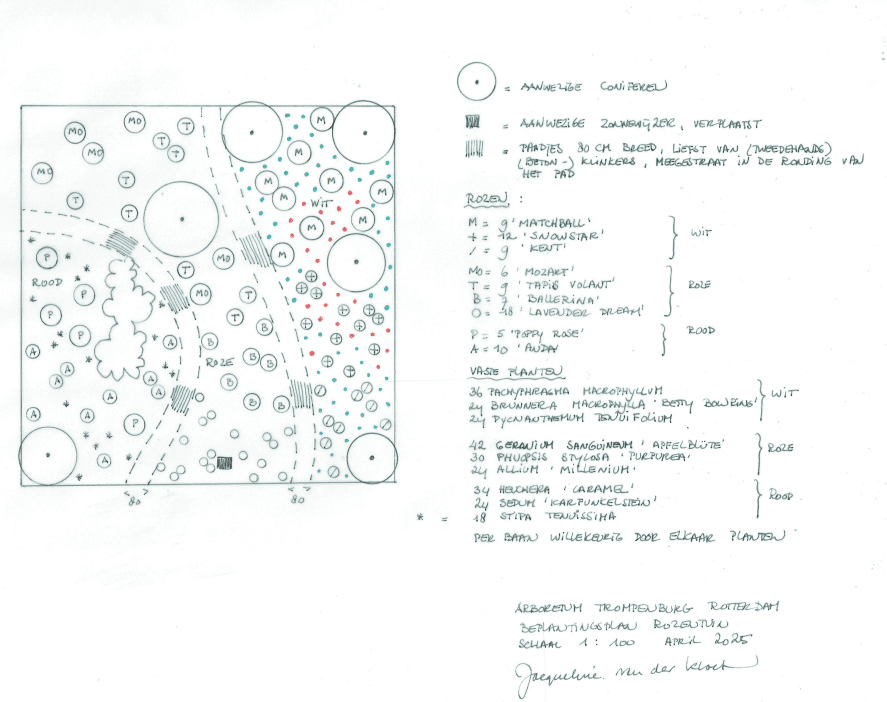 = AANWEZIGE CONIFEREN
= AANWEZIGE ZONNEWIJZER, VERPLAATST
= PAADJES 80 CM BREED, LIEFST VAN (TWEEDEHANDS)
(BETON-) KLINKERS, MEEGESTRAAT IN DE RONDING VAN
HET PAD
ROZEN :
M = 9 'MATCHBALL'
+ = 12 'SNOWSTAR'
/ = 9 'KENT'
WIT
MO = 6 'MOZART'
T = 9 'TAPIS VOLANT'
B = 7 'BALLERINA'
O = 18 'LAVENDER DREAM'
ROZE
P = 5 'POPPY ROSE'
A = 10 'ANDA'
ROOD
VASTE PLANTEN
36 PACHYPHRAGMA MACROPHYLLUM
24 BRUNNERA MACROPHYLLA 'BETTY BOWRING'
24 PYCNANTHEMUM TENUIFOLIUM
WIT
42 GERANIUM SANGUINEUM 'APFELBLÜTE'
30 PHUOPSIS STYLOSA 'PURPUREA'
24 ALLIUM 'MILLENIUM'
ROZE
34 HEUCHERA 'CARAMEL'
24 SEDUM 'KARFUNKELSTEIN'
* = 18 STIPA TENUISSIMA
ROOD
PER BAAN WILLEKEURIG DOOR ELKAAR PLANTEN
ARBORETUM TROMPENBURG ROTTERDAM
BEPLANTINGSPLAN ROZENTUIN
SCHAAL 1 : 100 APRIL 2025
Jacqueline van der Kloet
MO
MO
MO
MO
T
T
T
T
T
M
M
M
M
M
M
M
M
M
WIT
ROOD
P
P
P
P
P
T
MO
MO
T
T
B
B
B
B
B
B
B
ROZE
A
A
A
A
A
A
A
A
A
A
80
80